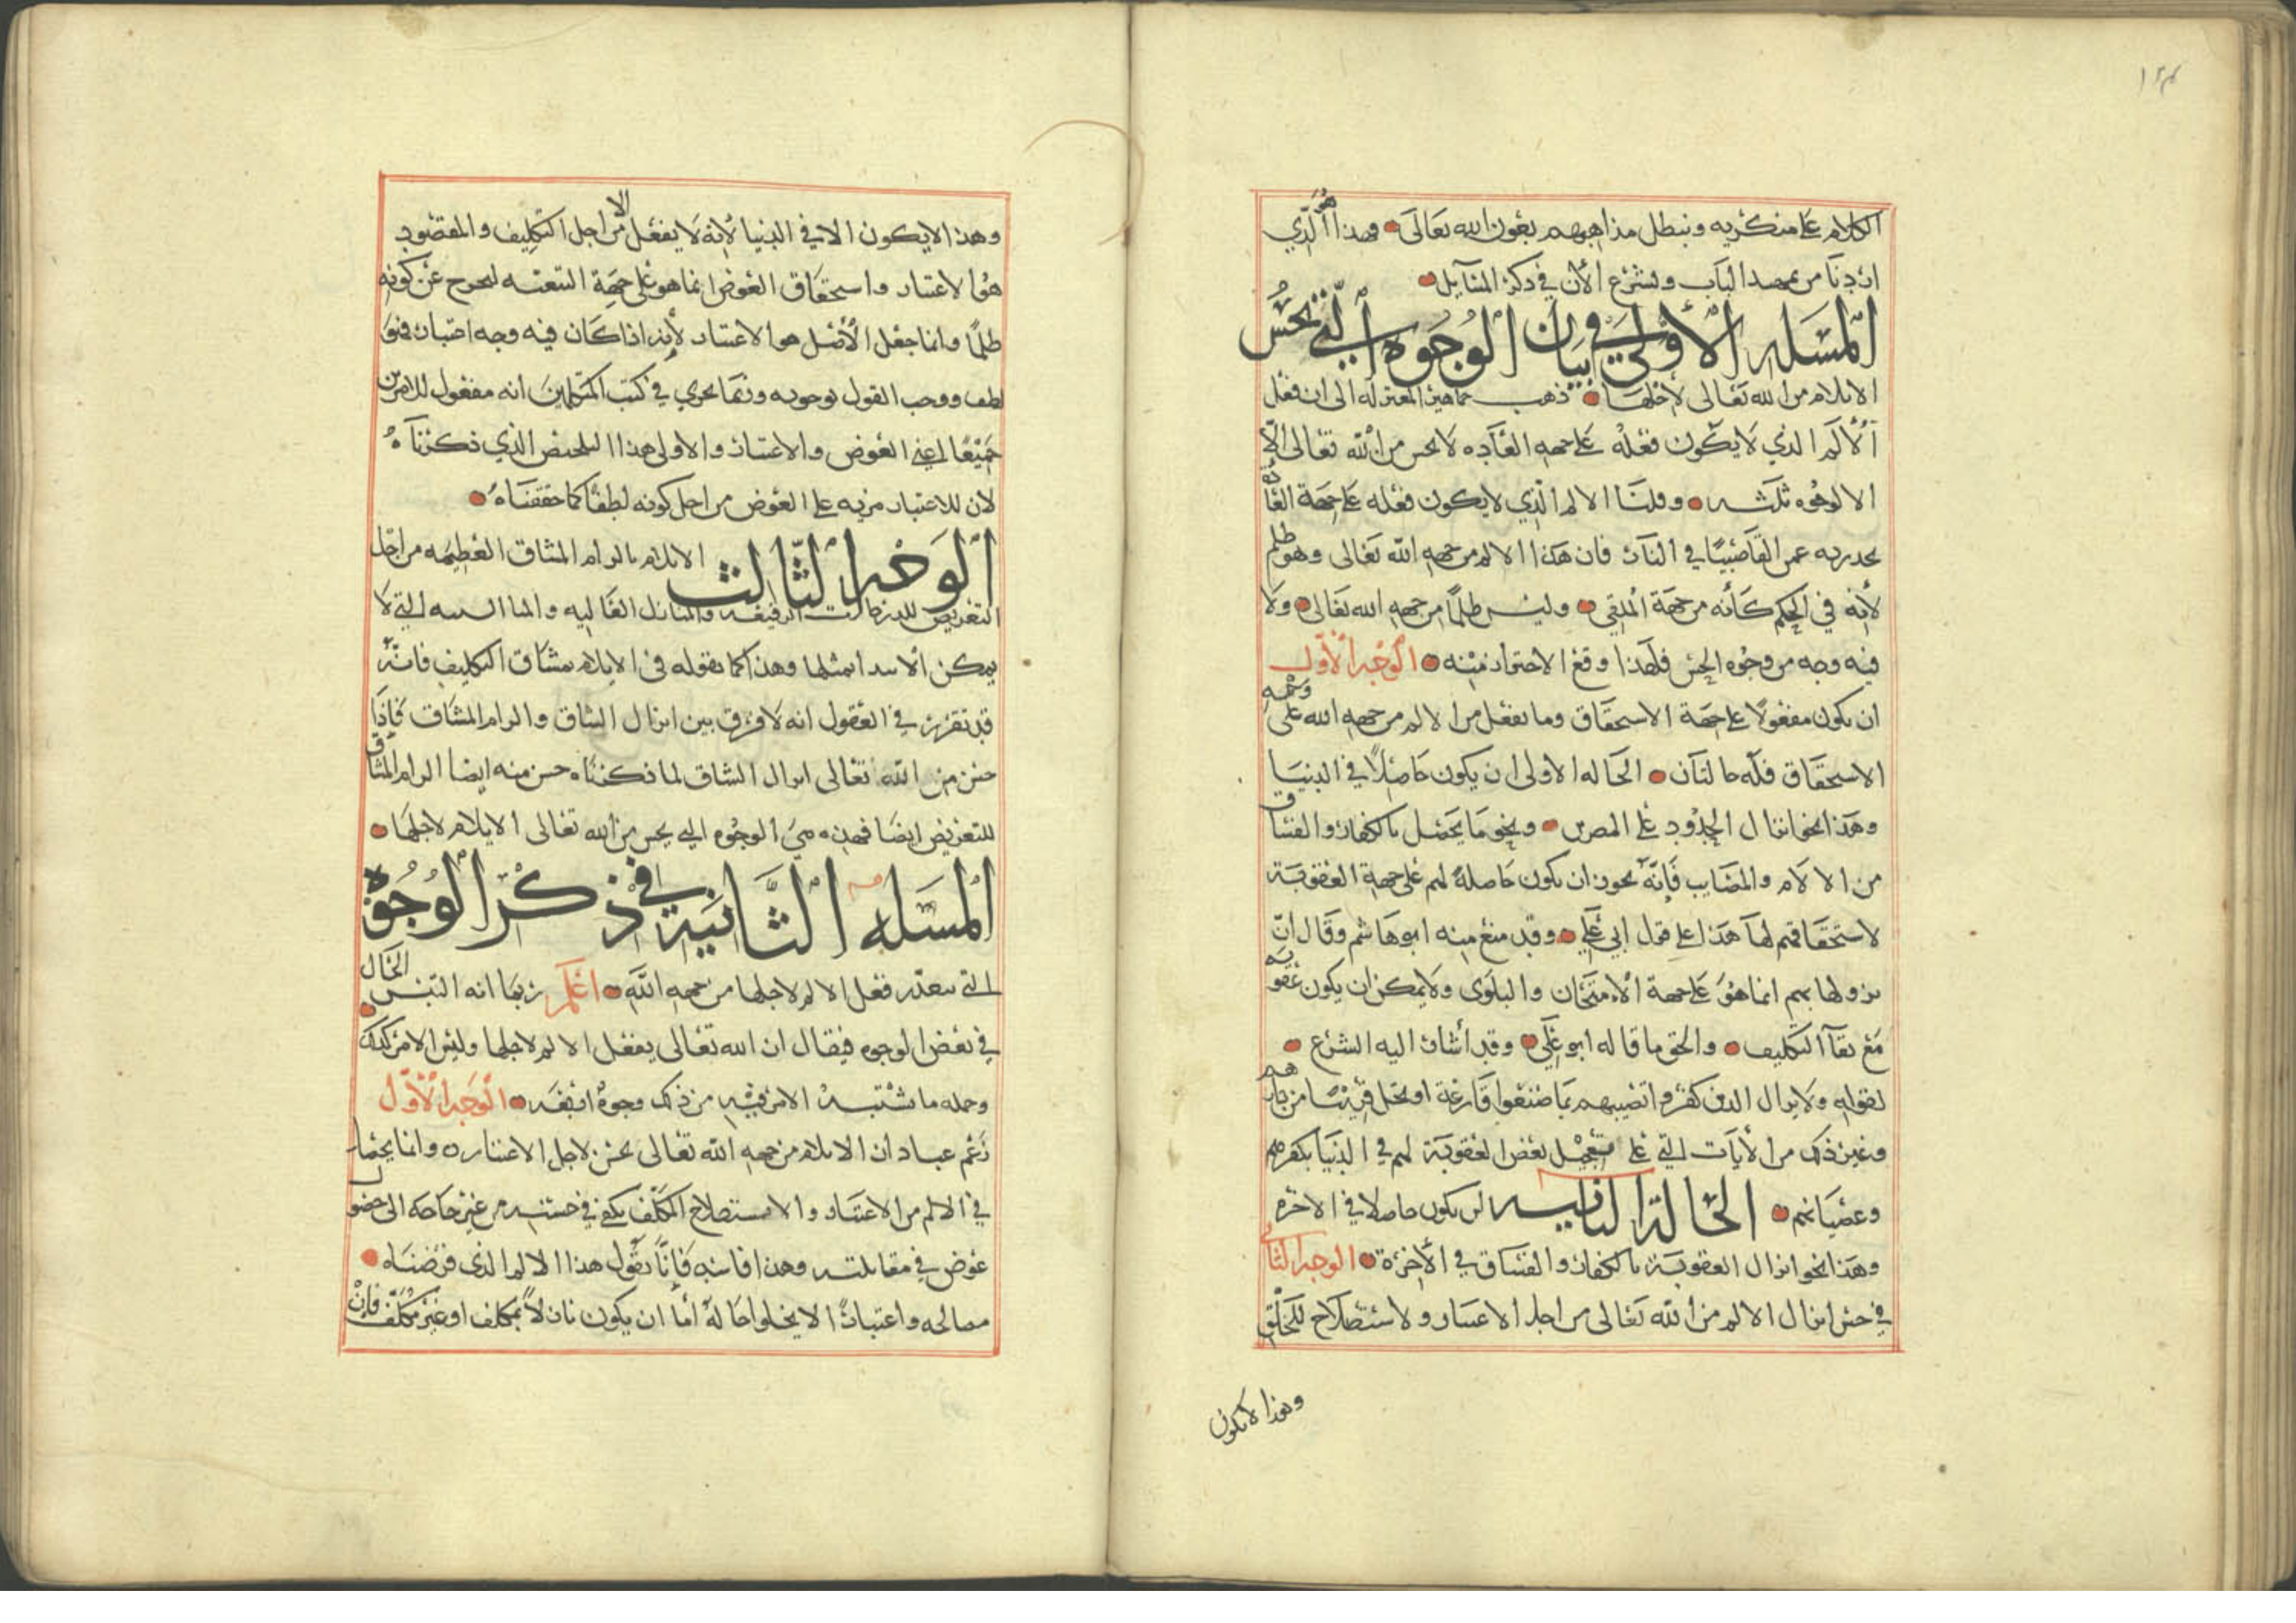 ١٢٤
الكلام على منكريه ونبطل مذاهبهم بعون الله تعالى وهذا هو الذي
اردنا من الباب ولنشرع الأن في ذكر المسآيل
المسله الأولى في بيان الوجوه التي تحسن
الايلام من الله تعالى لأجلها ذهب جماهير المعتزله الى ان فعل
الألم الذي لا يكون فعله على جهه العاده لا يحسن من الله تعالى الا
لوجوه ثلثه وقلنا الالم الذي لا يكون فعله على جهة العادة
نحترز به عمن القا صبيًا في النار فان هذا الالم من جهه الله تعالى وهو ظلم
لأنه في الحكم كأنه من جهة الملقي وليس ظلمًا من جهه الله تعالى ولا
فيه وجه من وجوه الحسن فلهذا وقع الاحتراز منه الوجه الأول
ان يكون مفعولًا على جهة الاستحقاق وما يفعل من الالم من جهه الله على وجه
الاستحقاق فله حالتان الحاله الاولى ان يكون حاصلًا في الدنيا
وهذا نحو انزال الحدود على المصرين ونحو ما يحصل بالكفار والفساق
من الالام والمصايب فإنه يجوز ان يكون حاصلة لهم على جهة العقوبة
لاستحقاقهم لها هذا على قول ابي علي وقد منع منه ابو هاشم وقال ان
نزولها بهم انما هو على جهة الأمتحان والبلوى ولا يمكن ان يكون عقوبه
مع بقآ التكليف والحق ما قاله ابو علي وقد أشار اليه الشرع
بقوله ولا يزال الذين كفروا تصيبهم بما صنعوا قارعة او تحل قريبًا من دارهم
وغير ذلك من الأيات التي على تعجيل بعض العقوبة لهم في الدنيا بكفرهم
وعصيانهم الحالة الثانيه ان يكون حاصلا في الاخره
وهذا نحو انزال العقوبة بالكفار والفساق في الأخرة الوجه الثاني
في حسن انزال الالم من الله تعالى من اجل الاعتبار ولاستصلاح للخلق
وهذا لا يكون
وهذا لا يكون الا في الدنيا لأنه لا يفعل الا من اجل التكليف والمقصود
هو الاعتبار واستحقاق العوض انما هو على جهة التبعيه ليخرج عن كونه
ظلمًا وانما جعل الأصل هو الاعتبار لأنه اذا كان فيه وجه اعتبار فهو
لطف ووجب القول بوجوبه وربما يجري في كتب المتكلمين انه مفعول للامرين
جميعًا اعني العوض والاعتبار والاولى هذا التلخيص الذي ذكرناه
لان للاعتبار مزيه على العوض من اجل كونه لطفًا كما حققناه
الوجه الثالث الايلام بالزام المشاق العظيمه من اجل
التعريض للدرجات الرفيعه والمنازل العاليه والمنا السنيه التي لا
يمكن الابتدا بمثلها وهذا كما نقوله في الايلام بمشاق التكليف فانه
قد تقرر في العقول انه لا فرق بين انزال الشاق والزام المشاق فإذا
حسن من الله تعالى انزال الشاق لما ذكرناه حسن منه ايضا الزام المشاق
للتعريض ايضا فهذه هي الوجوه التي يحسن من الله تعالى الايلام لاجلها
المسله الثانية في ذكر الوجوه
التي يتعذر فعل الالم لاجلها من جهه الله اعلم ربما انه التبس الحال
في بعض الوجوه فيقال ان الله تعالى يفعل الالم لاجلها وليس الامر كذلك
وجمله ما يشتبه الامر فيه من ذلك وجوه اربعه الوجه الأول
زعم عباد ان الايلام من جهه الله تعالى يحسن لاجل الاعتبار وانما يحصل
في الالم من الاعتبار والاستصلاح المكلف يكفي في حسنه من غير حاجه الى حضول
عوض في مقابلته وهذا فاسد فإنا نقول هذا الالم الذي فرضناه
مصالحه واعتبارًا لا يخلوا حاله اما ان يكون نازلًا بمكلف او غير مكلف فإن